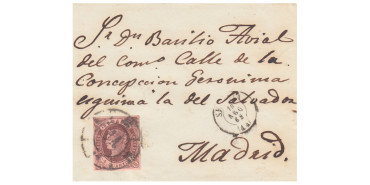 Sr. Dn Basilio Avial
del Como Calle de la
Concepcion Geronima
esquina la del Salvador
Madrid.